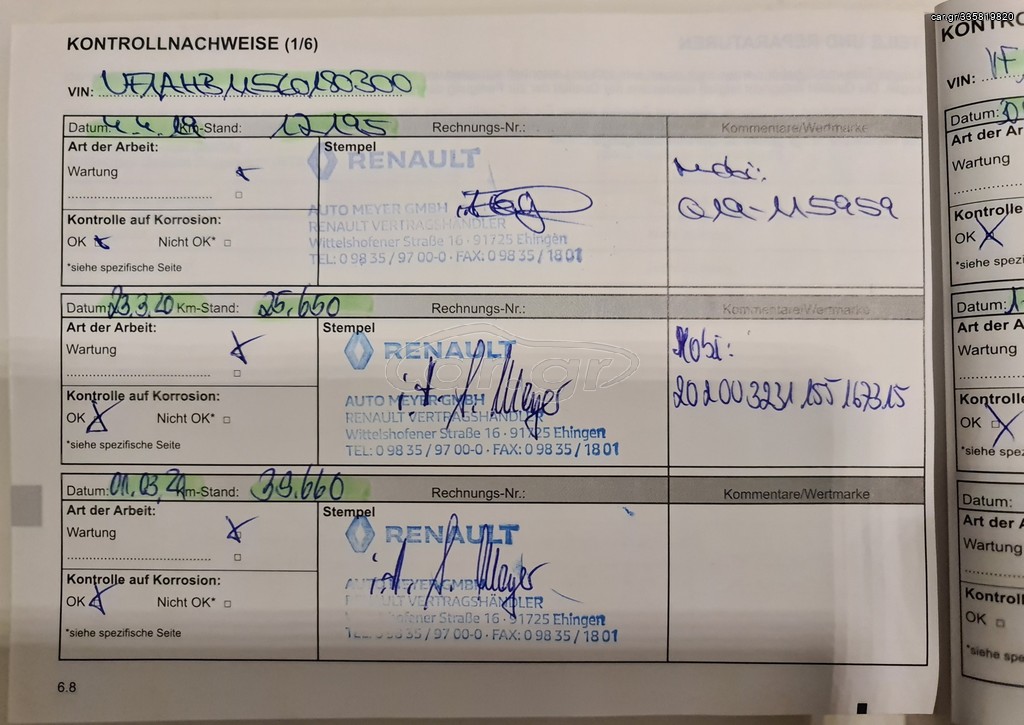 car.gr/335819820
KONTROLLNACHWEISE (1/6)
VIN:
Datum: 4.4.19 Km-Stand: 17195 Rechnungs-Nr.: Kommentare/Wertmarke
Art der Arbeit: Stempel
Wartung
RENAULT
Mobi:
Q19-115959
AUTO MEYER GMBH
RENAULT VERTRAGSHÄNDLER
Wittelshofener Straße 16 · 91725 Ehingen
TEL: 0 98 35 / 97 00-0 · FAX: 0 98 35 / 18 01
Kontrolle auf Korrosion:
OK Nicht OK*
*siehe spezifische Seite
Datum: 23.3.20 Km-Stand: 25.660 Rechnungs-Nr.: Kommentare/Wertmarke
Art der Arbeit: Stempel
Wartung
RENAULT
car.gr
i.A. S. Mayer
Mobi:
202003231155167315
AUTO MEYER GMBH
RENAULT VERTRAGSHÄNDLER
Wittelshofener Straße 16 · 91725 Ehingen
TEL: 0 98 35 / 97 00-0 · FAX: 0 98 35 / 18 01
Kontrolle auf Korrosion:
OK Nicht OK*
*siehe spezifische Seite
Datum: 01.03.21 Km-Stand: 39.660 Rechnungs-Nr.: Kommentare/Wertmarke
Art der Arbeit: Stempel
Wartung
RENAULT
i.A. S. Mayer
AUTO MEYER GMBH
VERTRAGSHÄNDLER
Straße 16 · 91725 Ehingen
TEL: 0 98 35 / 97 00-0 · FAX: 0 98 35 / 18 01
Kontrolle auf Korrosion:
OK Nicht OK*
*siehe spezifische Seite
6.8
KONTRO
VIN: VF
Datum:
Art der Ar
Wartung
Kontrolle
OK
*siehe spezifi
Datum:
Art der A
Wartung
Kontrolle
OK
*siehe spez
Datum:
Art der A
Wartung
Kontroll
OK
*siehe spe